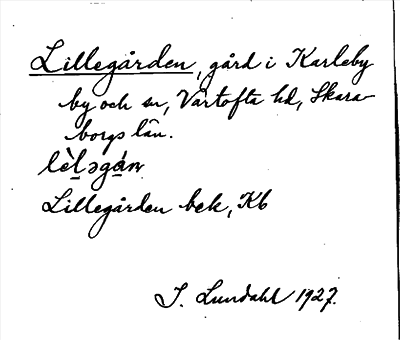 Lillegården, gård i Karleby
by och sn, Vartofta hd, Skara-
borgs län.
lèḷəgáṇ
Lillegården bek, Kb
I. Lundahl 1927.